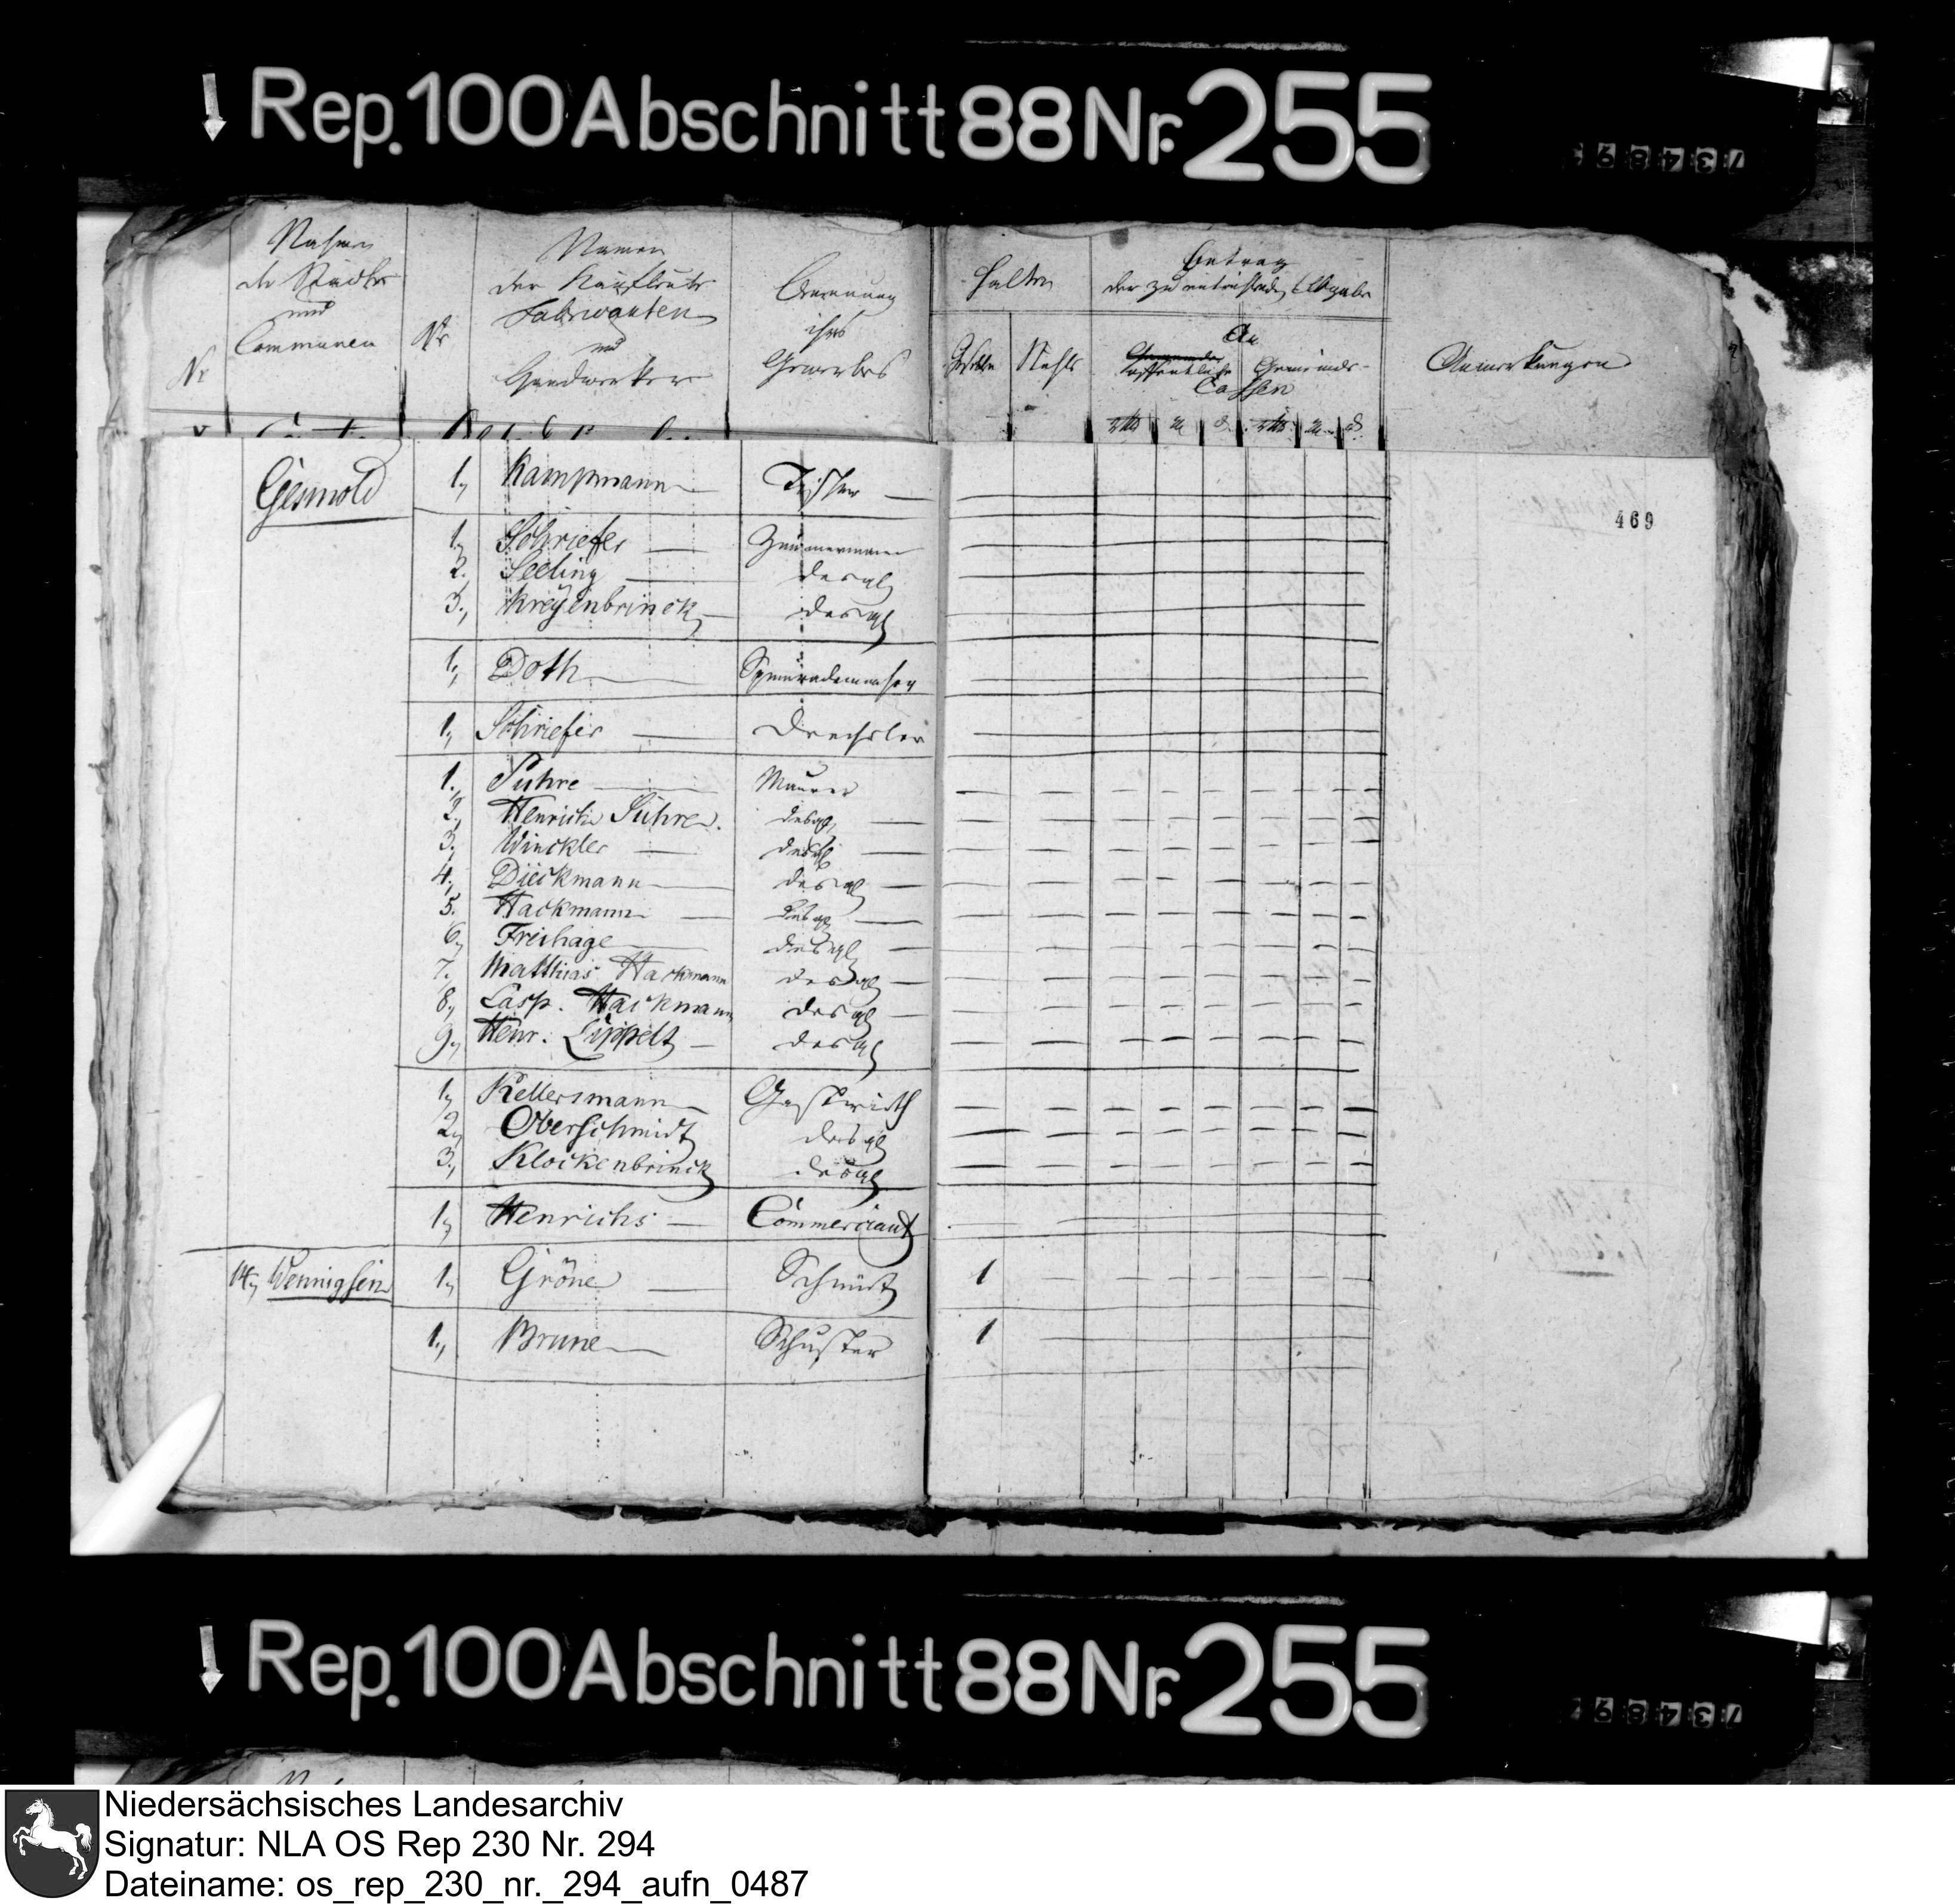 Rep. 100 Abschnitt 88 Nr. 255
Nahmen der Städte und Communen
Nr
Nr
Namen der Kaufleute Fabricanten und Handwerker
Benennung ihres Gewerbes
Halten
Gesellen
Stühle
Betrag der zu entrichtenden Abgabe
An
öffentliche Gemeinde-
Cassen
Anmerkungen
469
Gesmold 1, Kampmann Tischler
1, Schriefer Zimmermann
2, Seeling desgl
3, Kreyenbrinck desgl
1, Doth Spinnrademacher
1, Schriefer Drechsler
1, Suhre Maurer
2, Henrich Suhre desgl
3, Winckler desgl
4, Dieckmann desgl
5, Hackmann desgl
6, Freihage desgl
7, Matthias Hackmann desgl
8, Casp. Hackmann desgl
9, Henr. Lippelt desgl
1, Kellersmann Gastwirth
2, Oberschmidt desgl
3, Klockenbrinck desgl
1, Henrichs Commerciant
14, Wennigsen 1, Gröne Schmidt 1
1, Brune Schuster 1
Rep. 100 Abschnitt 88 Nr. 255
Niedersächsisches Landesarchiv
Signatur: NLA OS Rep 230 Nr. 294
Dateiname: os_rep_230_nr._294_aufn_0487